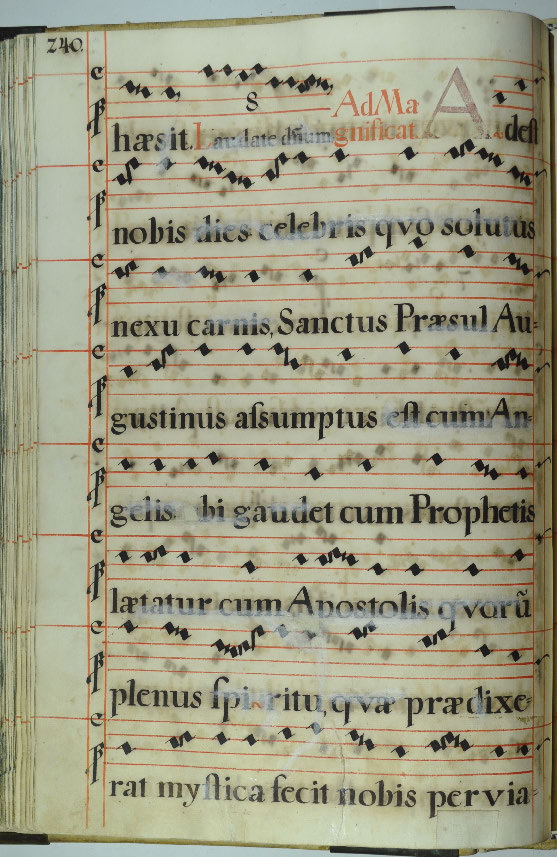 240
8
hæsit. Laudate dñum Ad Magnificat. Adest
nobis dies celebris qvo solutus
nexu carnis, Sanctus Præsul Au-
gustinus aſsumptus eſt cum An-
gelis bi gaudet cum Prophetis
lætatur cum Apostolis qvorũ
plenus ſpiritu, qvæ prædixe-
rat myſtica fecit nobis pervia